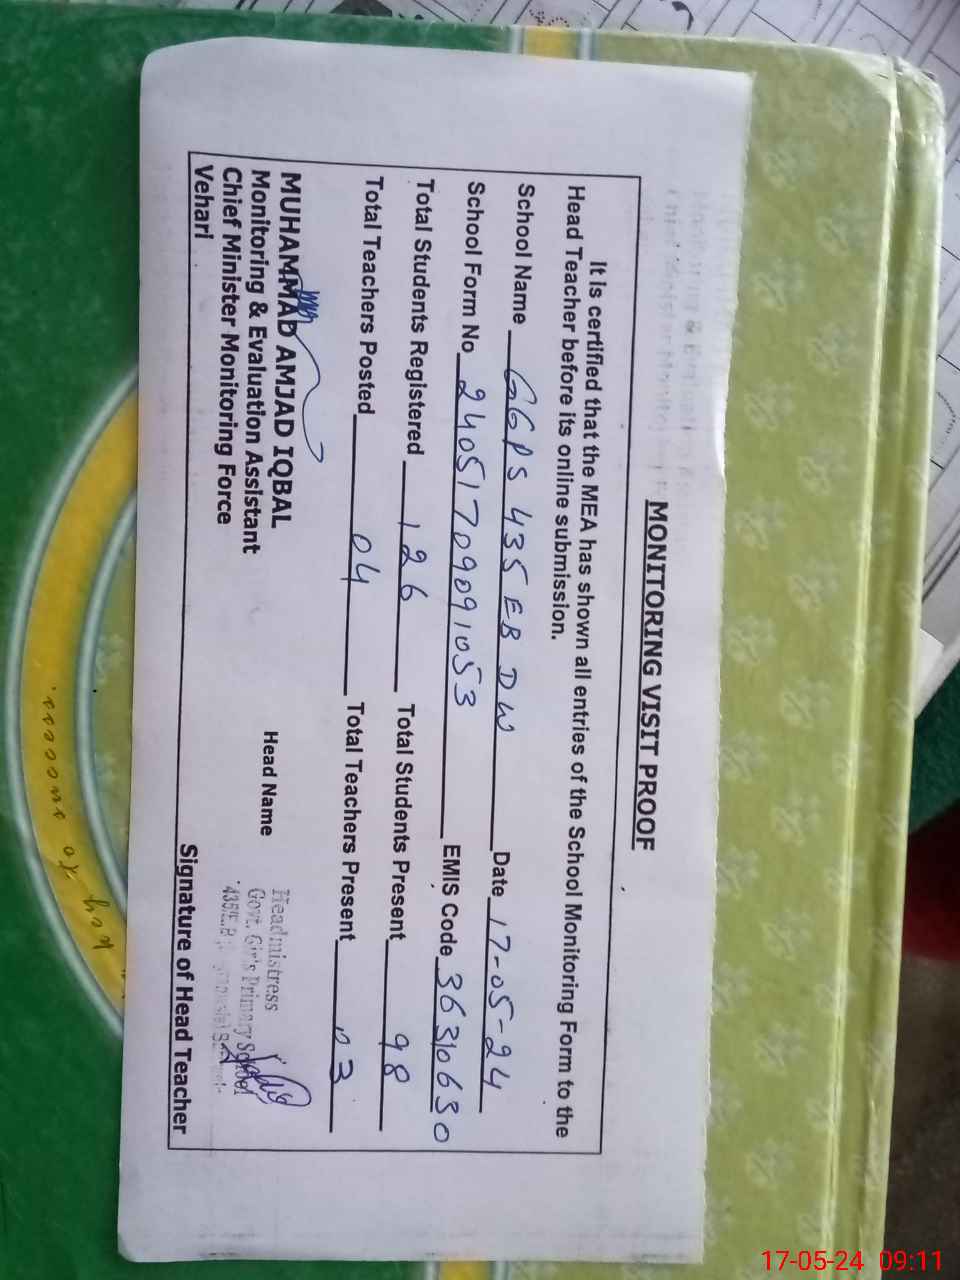 MONITORING VISIT PROOF
It is certified that the MEA has shown all entries of the School Monitoring Form to the
Head Teacher before its online submission.
School Name GGPS 435 EB DW Date 17-05-24
School Form No 24051709091053 EMIS Code 36310630
Total Students Registered 126 Total Students Present 98
Total Teachers Posted 04 Total Teachers Present 03
MUHAMMAD AMJAD IQBAL
Monitoring & Evaluation Assistant
Chief Minister Monitoring Force
Vehari
Head Name
Headmistress
Govt. Girls Primary School
435/E.B
Signature of Head Teacher
17-05-24 09:11